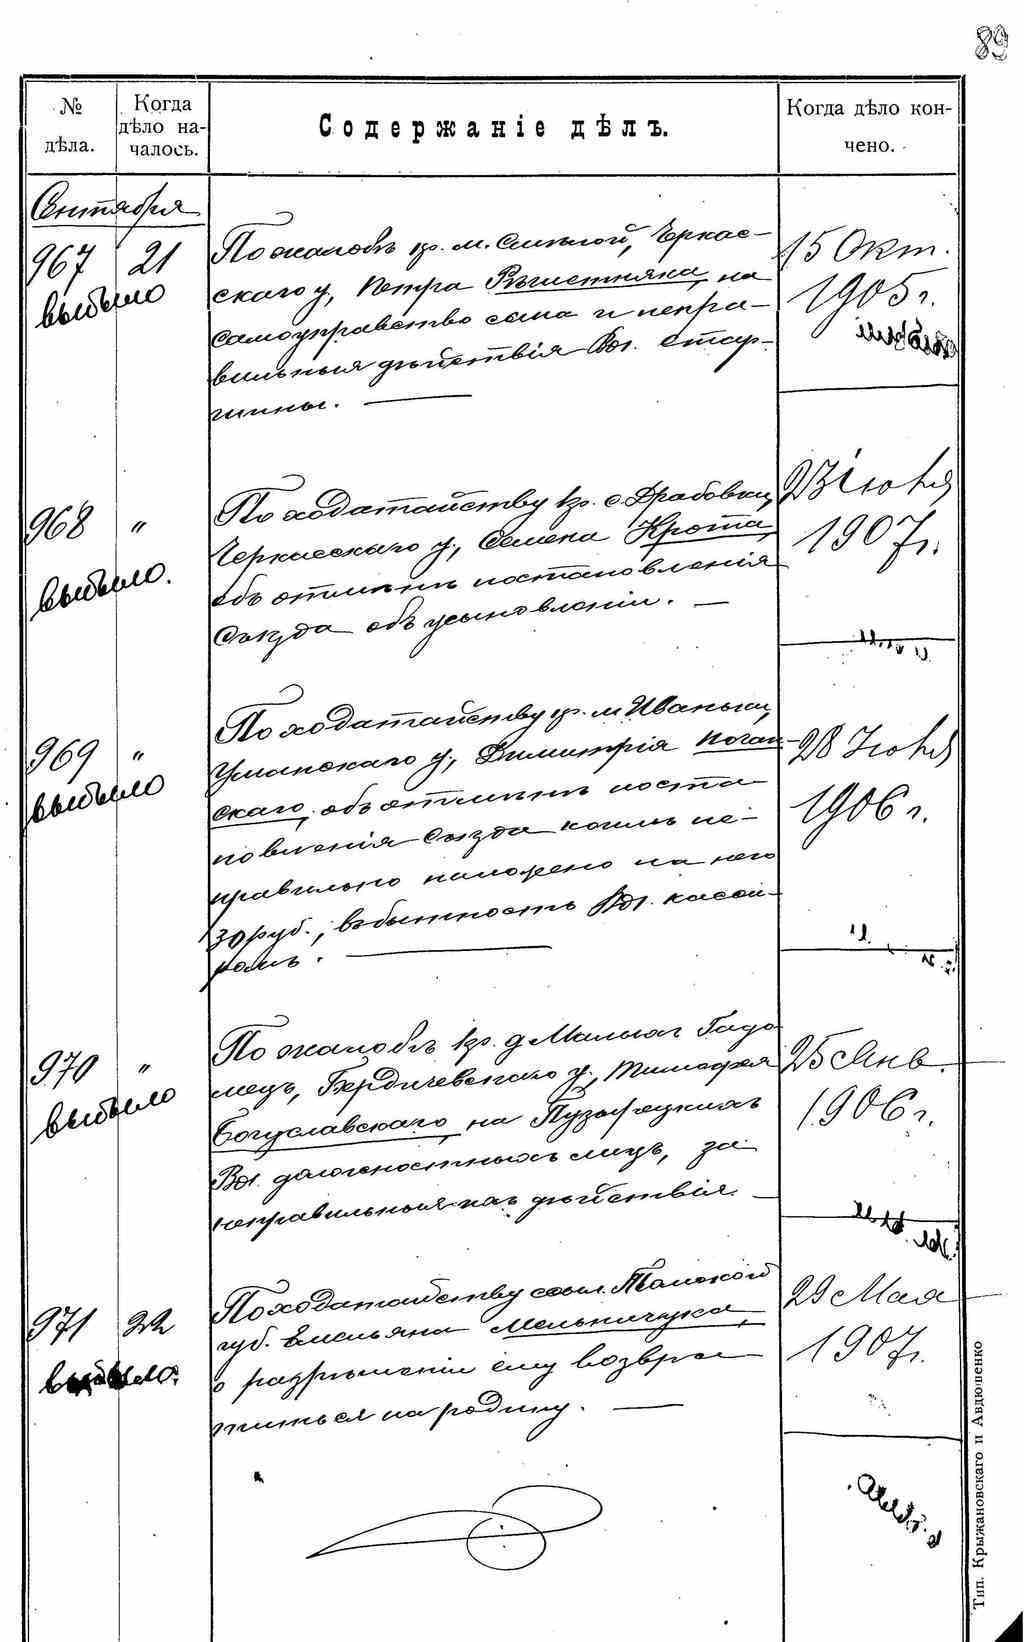 89
№ дѣла.
Когда дѣло началось.
Содержаніе дѣлъ.
Когда дѣло кончено.
Сентября
967
21
выбыло
По жалобѣ кр. м. Смѣлой, Черкас-
скаго у., Петра
на
самоуправство сына и непра-
вильныя дѣйствія Вол. стар-
шины. —
15 Окт.
1905 г.
968
"
выбыло.
По ходатайству кр. с. Драбовки,
Черкасскаго у., Семена Крота,
объ отмѣнѣ постановленія
Съѣзда объ усыновленіи. —
23 Іюля
1907 г.
969
"
выбыло
По ходатайству кр. м. Иваньки,
Уманскаго у., Димитрія Поган-
скаго, объ отмѣнѣ поста
новленія Съѣзда коимъ не-
правильно наложено на него
30 руб., въ бытность Вол. касси-
ромъ. —
28 Іюля
1906 г.
970
"
выбыло
По жалобѣ кр. д. Малыхъ Гадо
мецъ, Бердичевскаго у., Тимофея
Богуславскаго, на
Вол. должностныхъ лицъ, за
неправильныя ихъ дѣйствія. —
25 Янв.
1906 г.
971
22
выбыло.
По ходатайству ссыл. Томской
губ. Емельяна Мельничука,
о разрѣшеніи ему возвра
титься на родину. —
29 Мая
1907 г.
Тип. Крыжановскаго и Авдюшенко